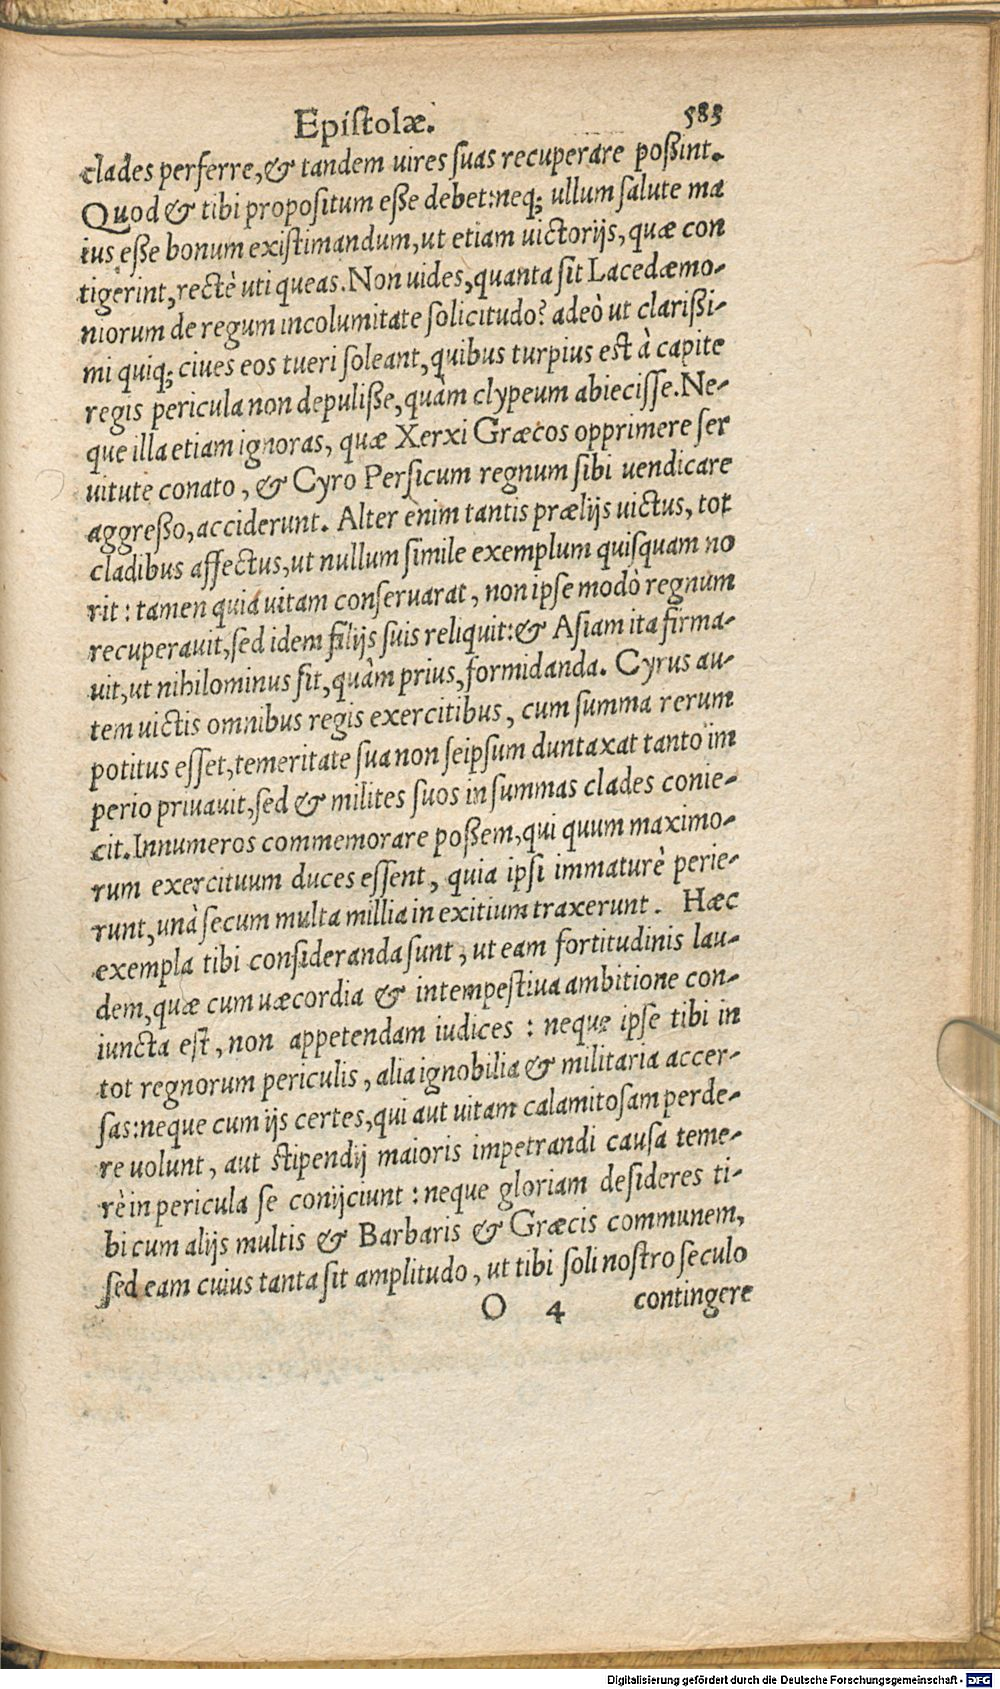 Epistolæ. 583
clades perferre, & tandem uires suas recuperare poßint.
Quod & tibi propositum eße debet: neq; ullum salute ma
ius eße bonum existimandum, ut etiam uictorijs, quæ con
tigerint, rectè uti queas. Non uides, quanta sit Lacedæmo-
niorum de regum incolumitate solicitudo? adeò ut clarißi-
mi quiq; ciues eos tueri soleant, quibus turpius est à capite
regis pericula non depuliße, quàm clypeum abiecisse. Ne-
que illa etiam ignoras, quæ Xerxi Græcos opprimere ser
uitute conato, & Cyro Persicum regnum sibi uendicare
aggreßo, acciderunt. Alter enim tantis prælijs uictus, tot
cladibus affectus, ut nullum simile exemplum quisquam no
rit: tamen quia uitam conseruarat, non ipse modò regnum
recuperauit, sed idem filijs suis reliquit: & Asiam ita firma-
uit, ut nihilominus sit, quàm prius, formidanda. Cyrus au-
tem uictis omnibus regis exercitibus, cum summa rerum
potitus esset, temeritate sua non seipsum duntaxat tanto im
perio priuauit, sed & milites suos in summas clades conie-
cit. Innumeros commemorare poßem, qui quum maximo-
rum exercituum duces essent, quia ipsi immaturè perie-
runt, unà secum multa millia in exitium traxerunt. Hæc
exempla tibi consideranda sunt, ut eam fortitudinis lau-
dem, quæ cum uæcordia & intempestiua ambitione con-
iuncta est, non appetendam iudices: neque ipse tibi in
tot regnorum periculis, alia ignobilia & militaria accer-
sas: neque cum ijs certes, qui aut uitam calamitosam perde-
re uolunt, aut stipendij maioris impetrandi causa teme-
rè in pericula se conijciunt: neque gloriam desideres ti-
bi cum alijs multis & Barbaris & Græcis communem,
sed eam cuius tanta sit amplitudo, ut tibi soli nostro seculo
O 4 contingere
Digitalisierung gefördert durch die Deutsche Forschungsgemeinschaft - DFG